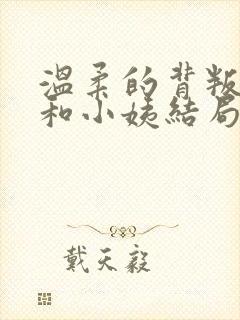 温柔的背叛
和小姨结局
戴天毅